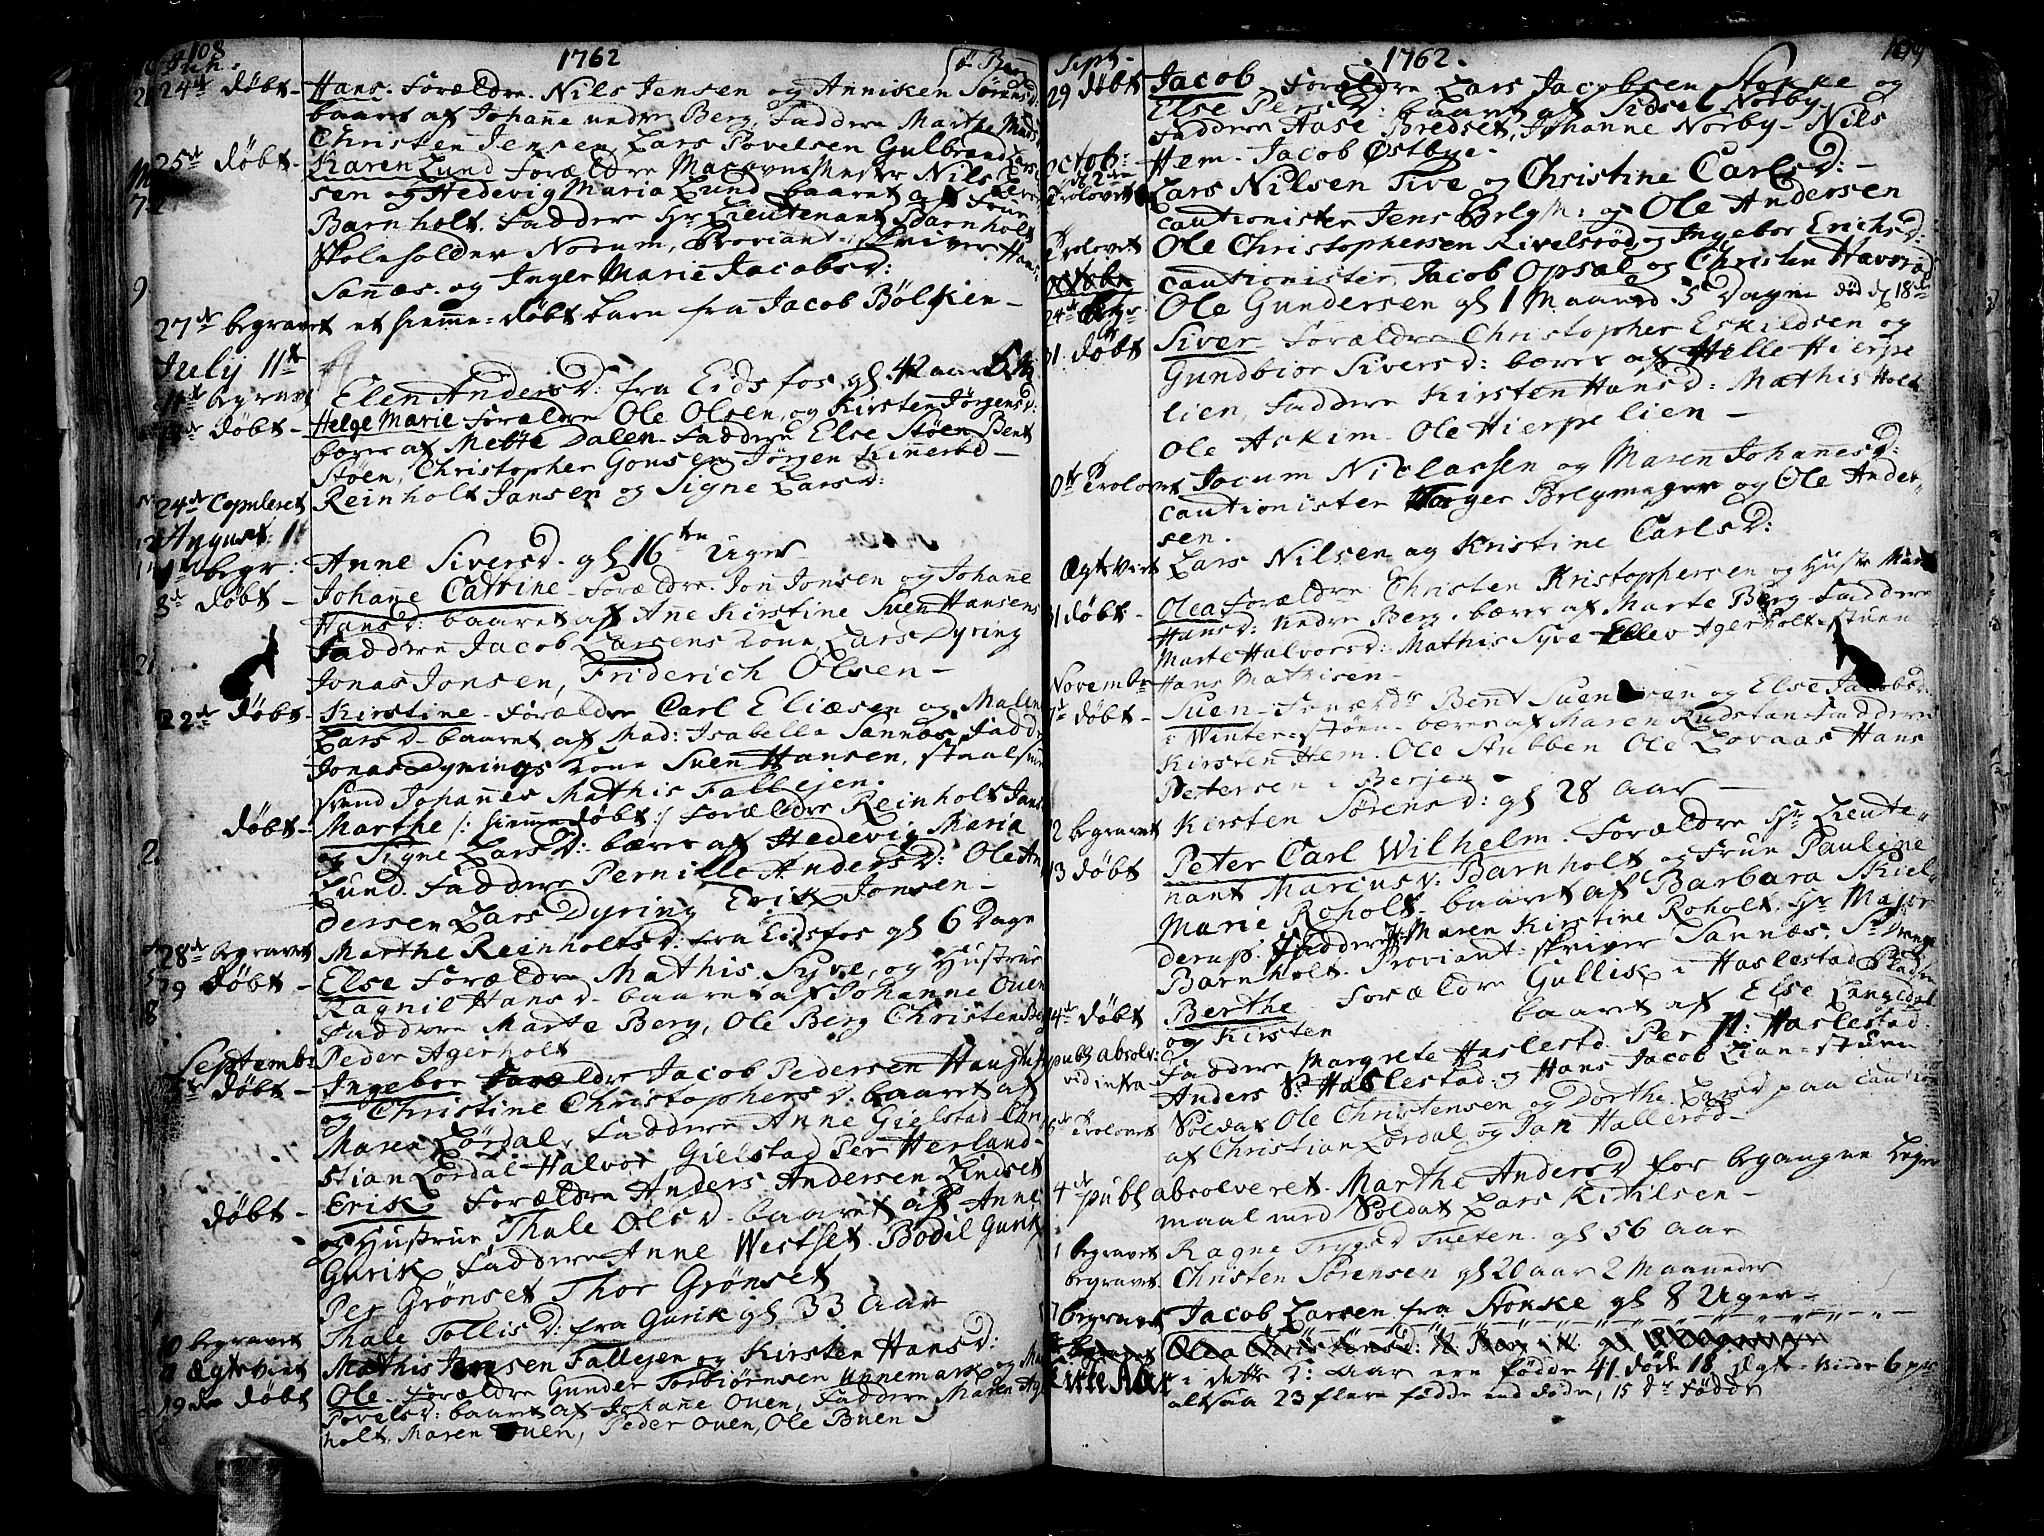 108
1762
Juni
24de døbt - Hans. Forældre. Nils Jensen og Anniken Sørensd:
baaret af Johanne undre Berg, Faddere Marthe
Christen Jensen, Lars Povelsen Gulbrand
25de døbt - Karen Lund Forældre Masovnsmester Nils Lar-
sen og Hedevig Maria Lund baaret af Frue
Barnholt. Faddere Hr Lieutenant Barnholt
Skoleholder Norum, Proviant-skriver Han:
Sannæs. og Inger Marie Jacobsd:
27de begravet et hiemme-døbt barn fra Jacob Bølkien -
July 11te
11te begravet Elen Andersd: fra Eidsfos gl. 42 aar
døbt - Helge Marie Forældre Ole Olsen, og Kirsten Jørgensd:
bæres af Mette Dalen Faddere Else Støen Bent
Støen, Christopher Gousen Jørgen Kinerød -
24de Copuleret Reinholt Jansen og Signe Larsd:
August: 1
begr: Anne Siversd. gl 16ten Uger
8de døbt - Johanne Catrine Forældre. Jon Jonsen og Johanne
Hansd: baaret af Anne Kirstine Suen Hansens
Faddere Jacob Larsens kone Lars Dyring
Jonas Jonsen, Friderich Olsen -
22de døbt - Kirstine - Forældre Carl Eliæsen og Malene
Larsd - baaret af Mad: Isabella Sannæs. Fadd:
Jonas Dyrings kone Suen Hansen, staalsmed
svend Johannes Mathis Fallejen.
døbt - Marthe /: hiemmedøbt :/ Forældre Reinholt Jans:
og Signe Larsd: bæres af Hedevig Maria
Lund. Faddere Pernille Andersd: Ole An
dersen Lars Dyring Erik Jonsen -
28de begravet Marthe Reinholtsd: fra Eidsfos gl 6 Dage
29 døbt - Else Forældre Mathis Syve, og Hustrue
Ragnil Hansd - baaret af Johanne Ouen
Faddere Marte Berg, Ole Berg Christen Berg
Peder Agerholt
Septembr
døbt - Ingebor Forældre Jacob Pedersen
og Christine Christophersd. baaret af
Maren Lørdal, Faddere Anne Gielstad Chri
stian Lørdal Halvor Gielstad Per Herland -
døbt - Erik Forældre Anders Andersen Lindset
og Hustrue Thale Olsd - baaret af Anne
Gurik Faddere Anne Westset. Bodil Gurik
Per Grønset Thor Grønset
begravet Thale Tollisd: fra Gurik gl 33 aar
Ægteviet Mathis Jensen Fallejen og Kirsten Hansd:
19de døbt Ole - Forældre Gunder Torbiørnsen Unnemark og
Povelsd: baaret af Johane Ouen, Faddere Maren Ager
holt, Maren Ouen, Peder Ouen, Ole Buen
1762.
109
Sept.
29 døbt Jacob Forældre Lars Jacobsen Stokke og
Else Persd: baaret af Sidsel Norby
Faddere Aase Bredset, Johanne Norby - Nils
Hem - Jacob Østbye -
Octob:
Trolovet Lars Nilsen Tive og Christine Carlsd: -
cautionister Jens Belgm: og Ole Andersen
Trolovet Ole Christophersen Rivelsrød og Ingebor Erichsd:
cautionister Jacob Opsal og Christen Havsrød
24de begr Ole Gundersen gl 1 Maaned 5 Dage død d 18de
31. døbt Siver - Forældre Christopher Eskildsen og
Gundbior Siversd: bæres af Helle Hierpe
lien, Faddere Kirsten Hansd: Mathis Holt
Ole Askim - Ole Hierpelien -
Trolovet Jocum Niclassen og Maren Johannesd:
cautionister Torger Belgmager og Ole Ander-
sen.
Ægteviet Lars Nilsen og Kristine Carlsd:
31 døbt - Olea Forældre Christen Kristophersen og Hustr
Hansd: undre Berg. bæres af Marte Berg Faddere
Marte Halvorsd: Mathis Syve Ellev Agerholt-stuen
Hans Mathisen -
Novembr
døbt - Suen - Forældr Bent Suensen og Else Jacobsd:
i Winter-støen - bæres af Maren Rudstan Faddere
Kirsten Hem. Ole Stubben Ole Lovaas Hans
Petersen i Berjen
begravet Kirsten Sørensd: gl 28 aar -
13 døbt Peter Carl Wilhelm. Forældre Hr Lieute-
nant Marcus v: Barnholt og Frue Pauline
Marie Roholt - baaret af Barbara Skiel-
derup. Faddere Maren Kirstine Roholt, Hr Major
Barnholt. Proviant-skriver Sannæs. Sr
14de døbt Berthe Forældre Gullik i Haslestad
og Kirsten baaret af Else Langedal
publ absolv: Faddere Margrete Haslestad. Per N: Haslestad
vid infra Anders S: Haslestad og Hans Jacob Lian-stuen
Trolovet Soldat Ole Christensen og Dorthe Larsd paa caution
af Christian Lørdal og Jan Hallerød -
publ absolveret - Marthe Andersd for begangne Leger
maal med Soldat Lars Kittilsen -
begravet Ragne Trygsd Tueten. gl 56 aar
begravet Christen Sørensen gl 20 aar 2 Maaneder
begravet Jacob Larsen fra Stokke gl 8 Uger -
i dette 2: aar ere fødde 41. døde 18 Ægte-viede 6 par
altsaa 23 flere fødde end døde, 15 fødde